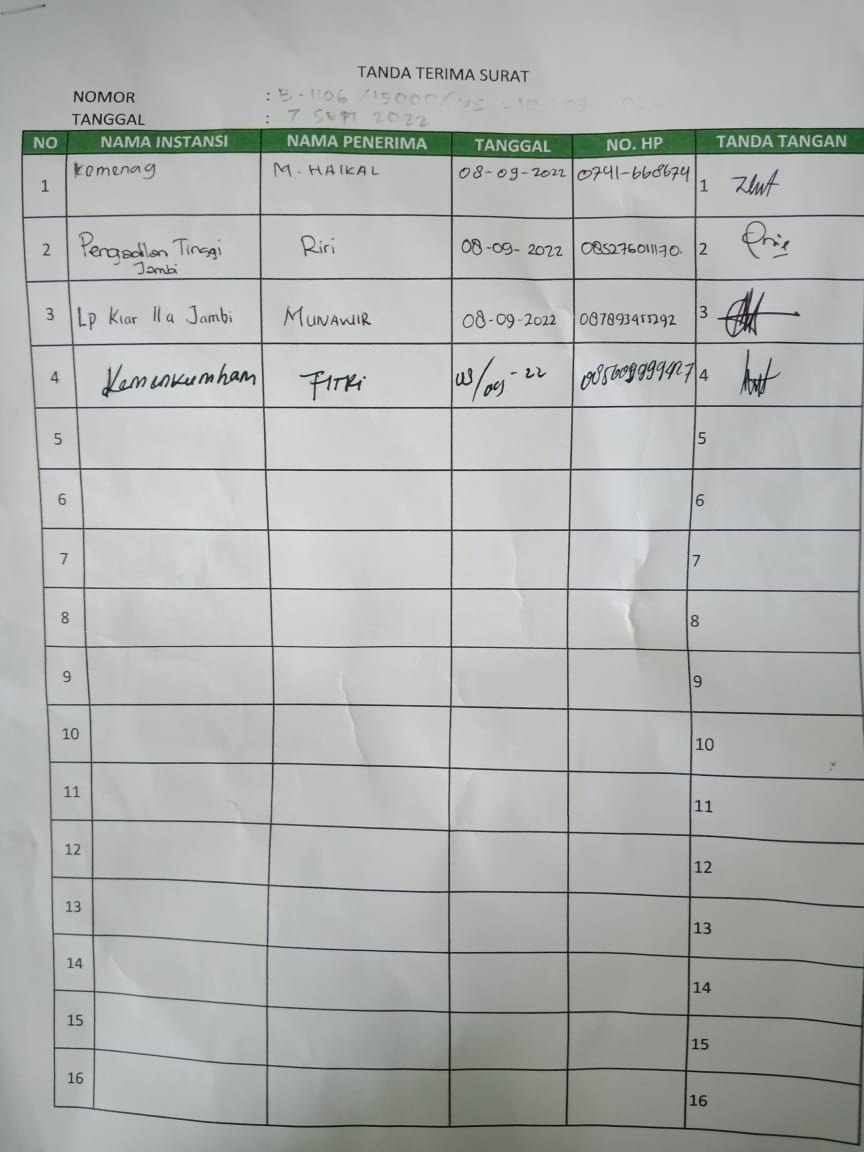 TANDA TERIMA SURAT
NOMOR : B-1106 /15000/
TANGGAL : 7 SEPT 2022
NO NAMA INSTANSI NAMA PENERIMA TANGGAL NO. HP TANDA TANGAN
1 Kemenag M. HAIKAL 08-09-2022 0741-668674 1
2 Pengadilan Tinggi Riri 08-09-2022 085276011170. 2
Jambi
3 Lp Klar IIa Jambi MUNAWIR 08-09-2022 3
4 Kemenkumham FITRI 4
5 5
6 6
7 7
8 8
9 9
10 10
11 11
12 12
13 13
14 14
15 15
16 16